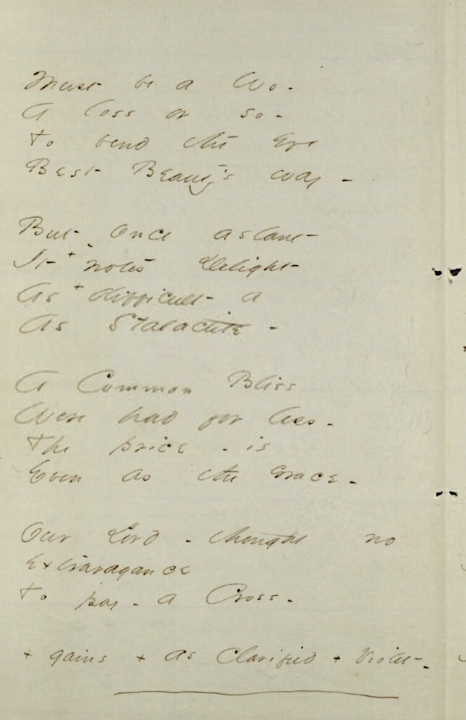 Must be a Wo -
A loss or so -
To bend the eye
Best Beauty's way -
But once aslant
It + notes Delight
As + difficult
As Stalactite -
A Common Bliss
Were had for less -
The price - is
Even as the Grace -
Our Lord - thought no
Extravagance
To pay - a Cross -
+ gains + as Clarified + Violet -